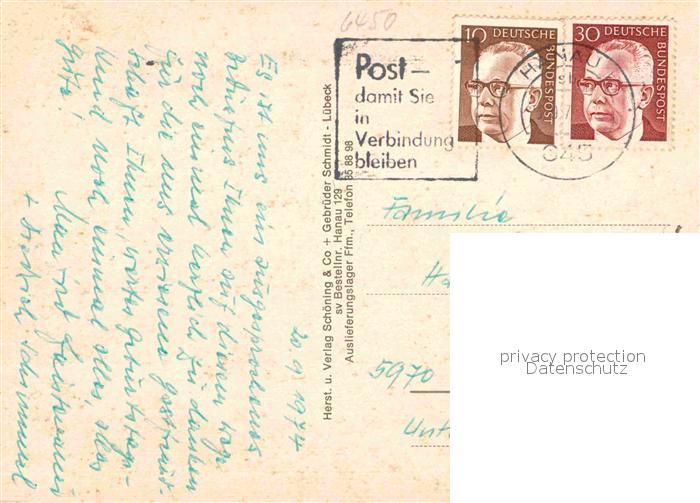 6450
Post–
damit Sie
in
Verbindung
bleiben
10 DEUTSCHE
BUNDESPOST
30 DEUTSCHE
BUNDESPOST
HANAU
645
20.9.1974
Es ist uns ein ausgesprochenes
Bedürfnis Ihnen auf diesem Wege
noch einmal herzlich zu danken
für die uns erwiesene Gastfreund-
schaft Ihnen, wertes Geburtstags-
kind noch einmal alles, alles
gute!
+
Herst. u. Verlag Schöning & Co + Gebrüder Schmidt - Lübeck
sv Bestellnr. Hanau 129
Auslieferungslager Ffm., Telefon 35 88 98
Familie
Ha
5970
Unt
privacy protection
Datenschutz